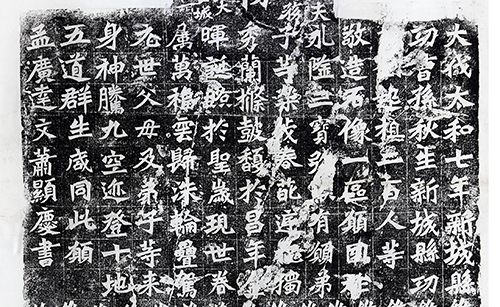 大代太和七年新城縣
功曹孫秋生新城縣功
起祖二百人等
敬造石像一區願國祚
永隆三寶有願弟
子等榮茂春葩庭槐獨
秀蘭條鼓馥於昌年
暉誕照於聖歲現世眷
屬萬福雲歸洙輪疊駕
元世父母及弟子等來
身神騰九空迹登十地
五道群生咸同此願
孟廣達文蕭顯慶書